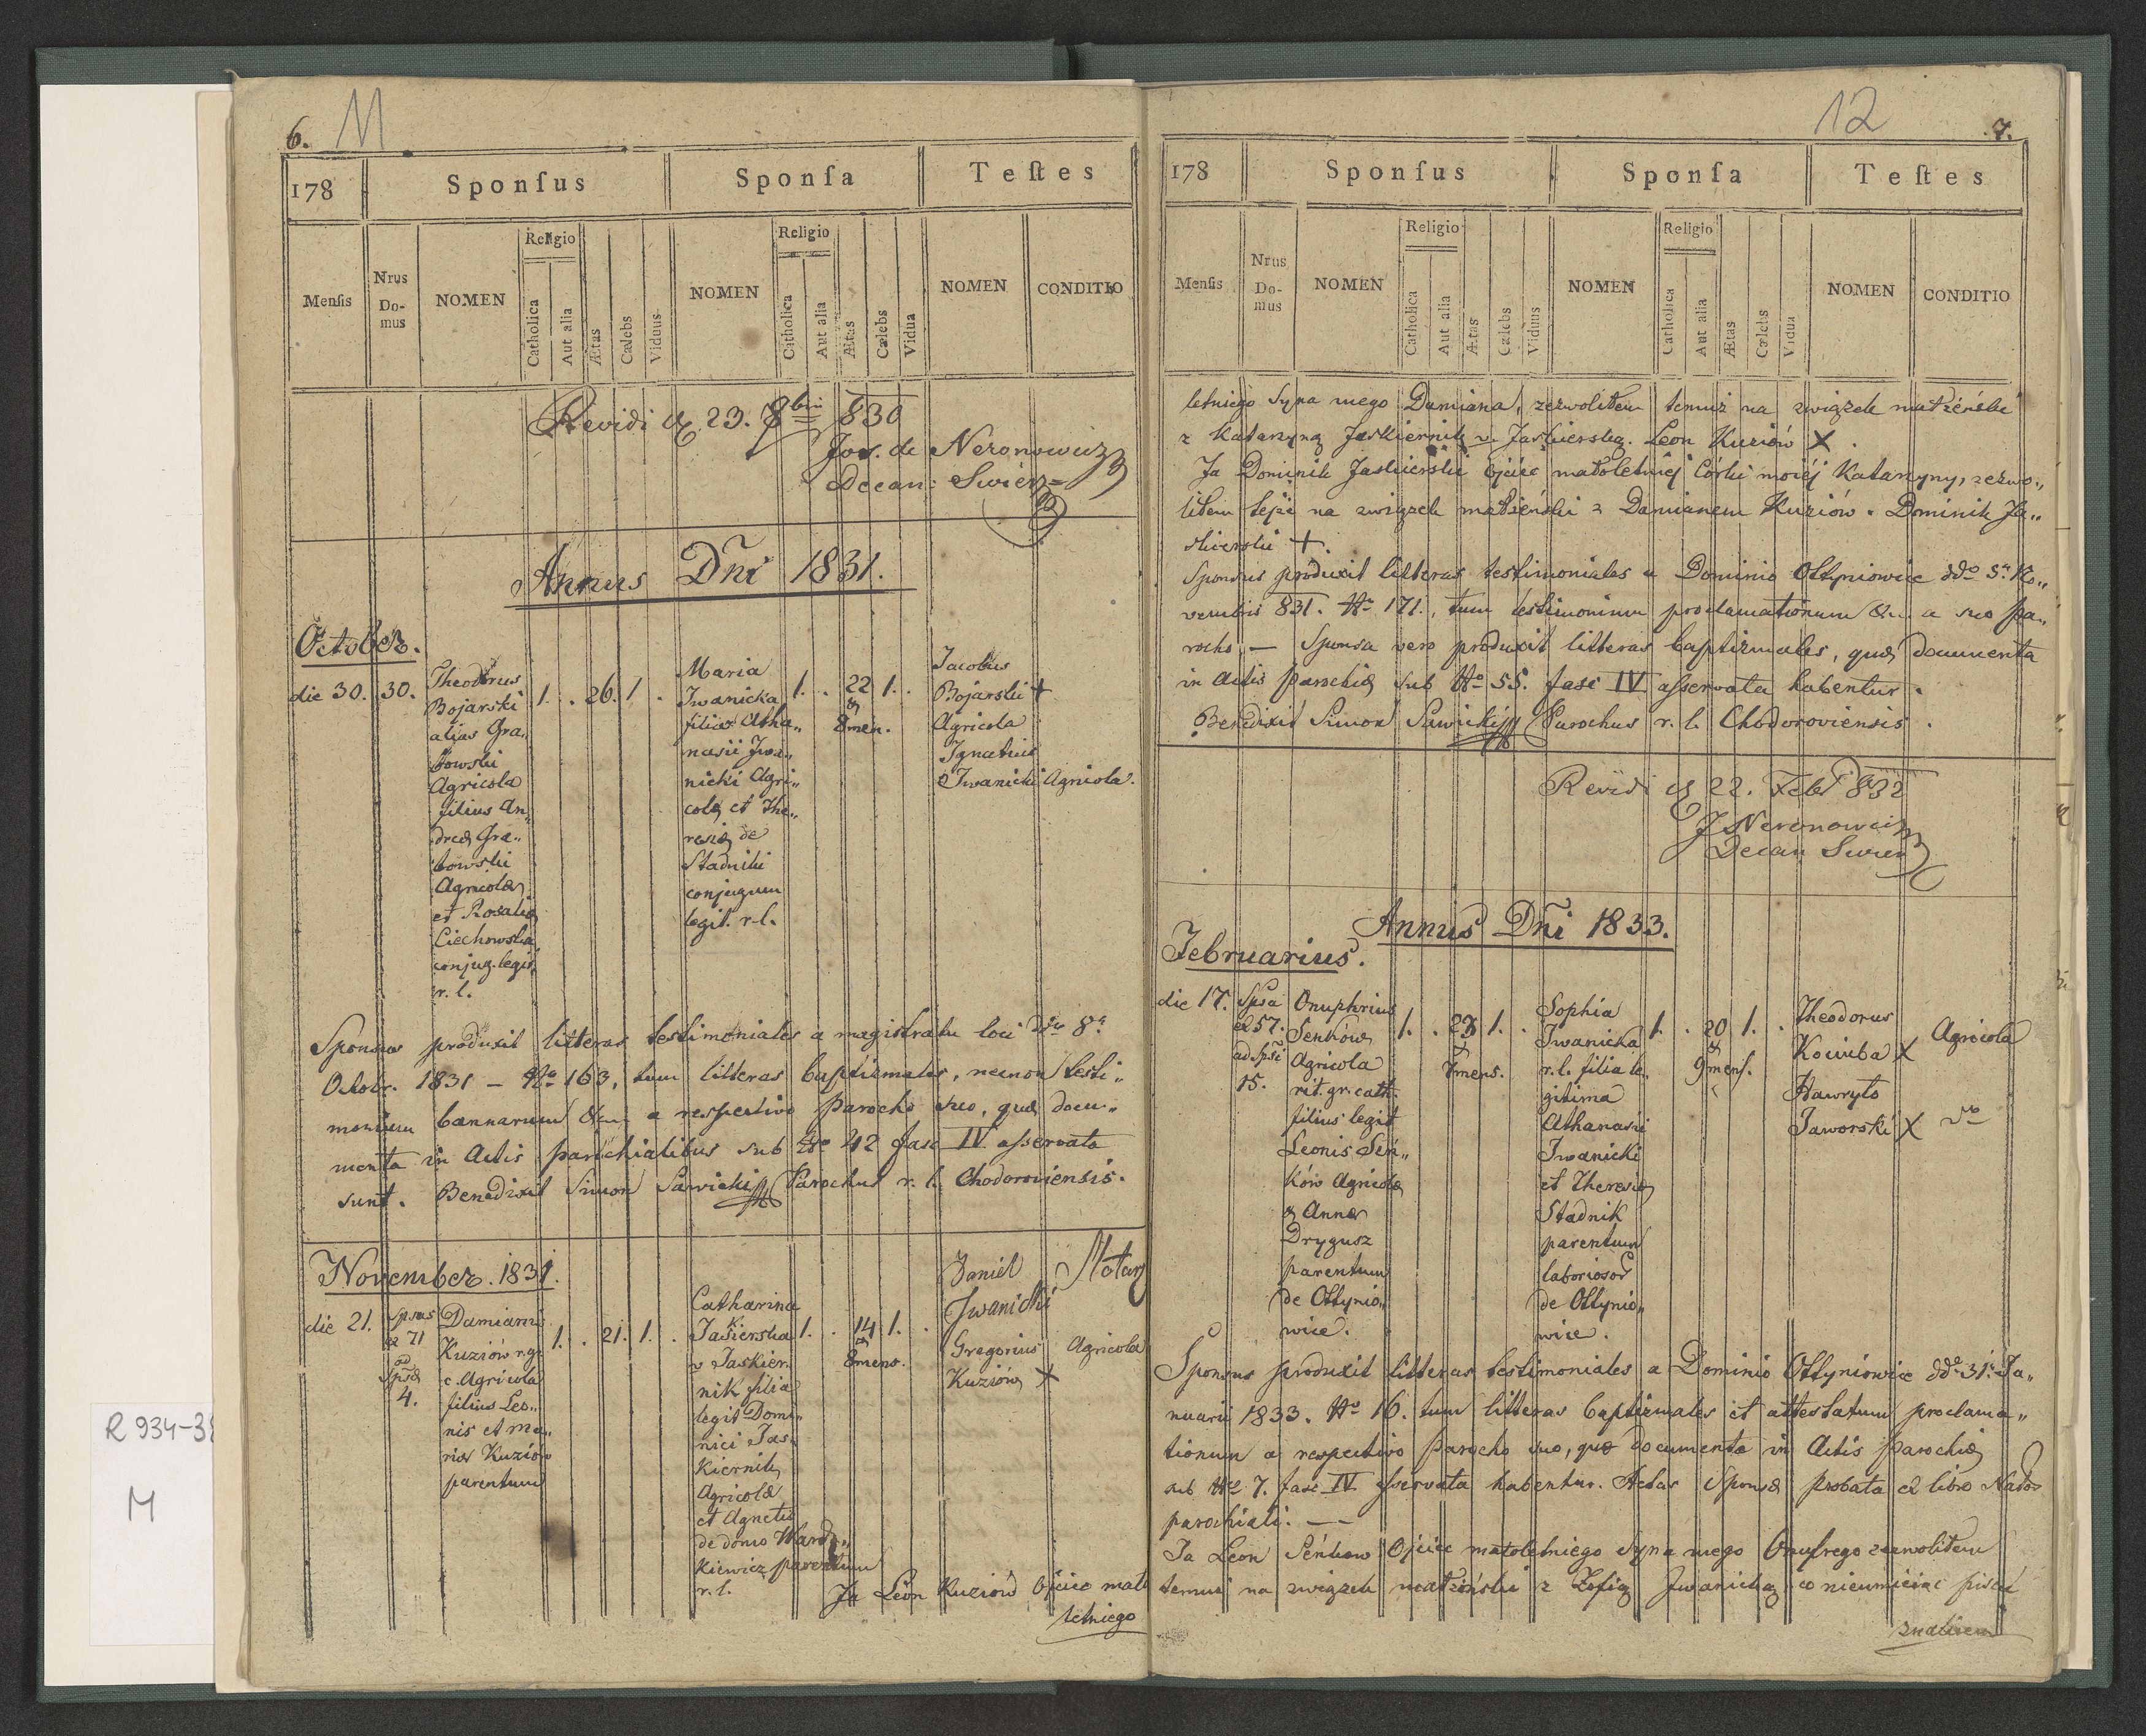 6.
11
178
Sponſus
Sponſa
Teſtes
Menſis
Nrus Do-mus
NOMEN
Religio
Catholica
Aut alia
Ætas
Cælebs
Viduus
NOMEN
Religio
Catholica
Aut alia
Ætas
Cælebs
Vidua
NOMEN
CONDITIO
Revidi 23. 8bri 830
Jos. de Neronowicz
Decan:
Annus Dni 1831.
October.
die 30.
30.
Theodorus
Bojarski
alias Gra„
bowski
Agricola
filius An„
dreæ Gra„
bowski
Agricolæ
et Rosaliæ
Ciechowska
conjug. legit.
r. l.
1. . 26. 1 .
Maria
Iwanicka
filia Atha„
nasii Iwa„
nicki Agri„
colæ et The„
resiæ de
Stadniki
conjugum
legit. r. l.
1. . 22 1. .
8 men.
Jacobus
Bojarski +
Agricola
Ignatius
Iwanicki Agricola.
Sponsus produxit litteras testimoniales a magistratu loci ddto 8a
Octobr. 1831 – No 163, tum litteras baptismales, necnon testi„
monium bannorum a respectivo parocho suo, quæ docu„
menta in Actis parochialibus sub No 42 fasc IV asservata
sunt. Benedixit Simon Sawicki Parochus r. l. Chodoroviensis.
November. 1831.
die 21.
Spsus
ex 71
ad
Spsæ
4.
Damianus
Kuziów r. g.
c. Agricola
filius Leo„
nis et Ma„
riæ Kuziów
parentum
1. . 21. 1. .
Catharina
Jaskierska
v Jaskier„
nik filia
legit Domi„
nici Jas„
kiernik
Agricolæ
et Agnetis
de domo Wardz„
kiewicz parentum
r. l.
1. . 14 1. .
8 mens.
Daniel
Iwanicki
Gregorius Agricola
Kuziów X
Ja Leon Kuziów Ojciec mało
letniego
12
7.
178
Sponſus
Sponſa
Teſtes
Menſis
Nrus Do-mus
NOMEN
Religio
Catholica
Aut alia
Ætas
Cælebs
Viduus
NOMEN
Religio
Catholica
Aut alia
Ætas
Cælebs
Vidua
NOMEN
CONDITIO
letniego syna mego Damiana, zezwoliłem temuż na związek małżeński
z Katarzyną Jaskiernik v. Jaskierską. Leon Kuziów X.
Ja Dominik Jaskierski Ojciec małoletniej Córki mojéj Katarzyny, zezwo„
liłem tejże na związek małżeński z Damianem Kuziów. Dominik Ja„
skierski +.
Sponsus produxit litteras testimoniales a Dominio Ottyniowice ddo 3a No„
vembris 831. No 171., tum testimonium proclamationum a suo pa„
rocho. — Sponsa vero produxit litteras baptismales, quæ documenta
in Actis Parochiæ sub No 55. fasc IV asservata habentur.
Benedixit Simon Sawicki Parochus r. l. Chodoroviensis.
Revidi 22. Feb 832
J Neronowicz
Decan
Annus Dni 1833.
Februarius.
die 17.
Spsa
ex 57.
ad Spsi
15.
Onuphrius
Seńków
Agricola
rit. gr. cath.
filius legit
Leonis Seń„
ków Agricolæ
& Annæ
Drygusz
parentum
de Ottynio„
wice.
1. . 23 1. .
7 mens.
Sophia
Iwanicka
r. l. filia le„
gitima
Athanasii
Iwanicki
et Theresiæ
Stadnik
parentum
laborioso
de Ottynio„
wice.
1. . 20 1. .
9 mens.
Theodorus
Kociuba X Agricola
Hawryło
Jaworski X do
Sponsus produxit litteras testimoniales a Dominio Ottyniowice ddo 31. Ja„
nuarii 1833. No 16. tum litteras baptismales et attestatum proclama„
tionum a respectivo Parocho suo, quæ documenta in Actis Parochiæ
sub No 7. fasc IV asservata habentur. Aetas Sponsæ probata ex libro Nator
parochiali. —
Ja Leon Seńkow Ojciec małoletniego syna mego Onufrego zezwoliłem
temuż na związek małżeński z Zofią Iwanicką co nieumiejąc pisać
R 934-3
M